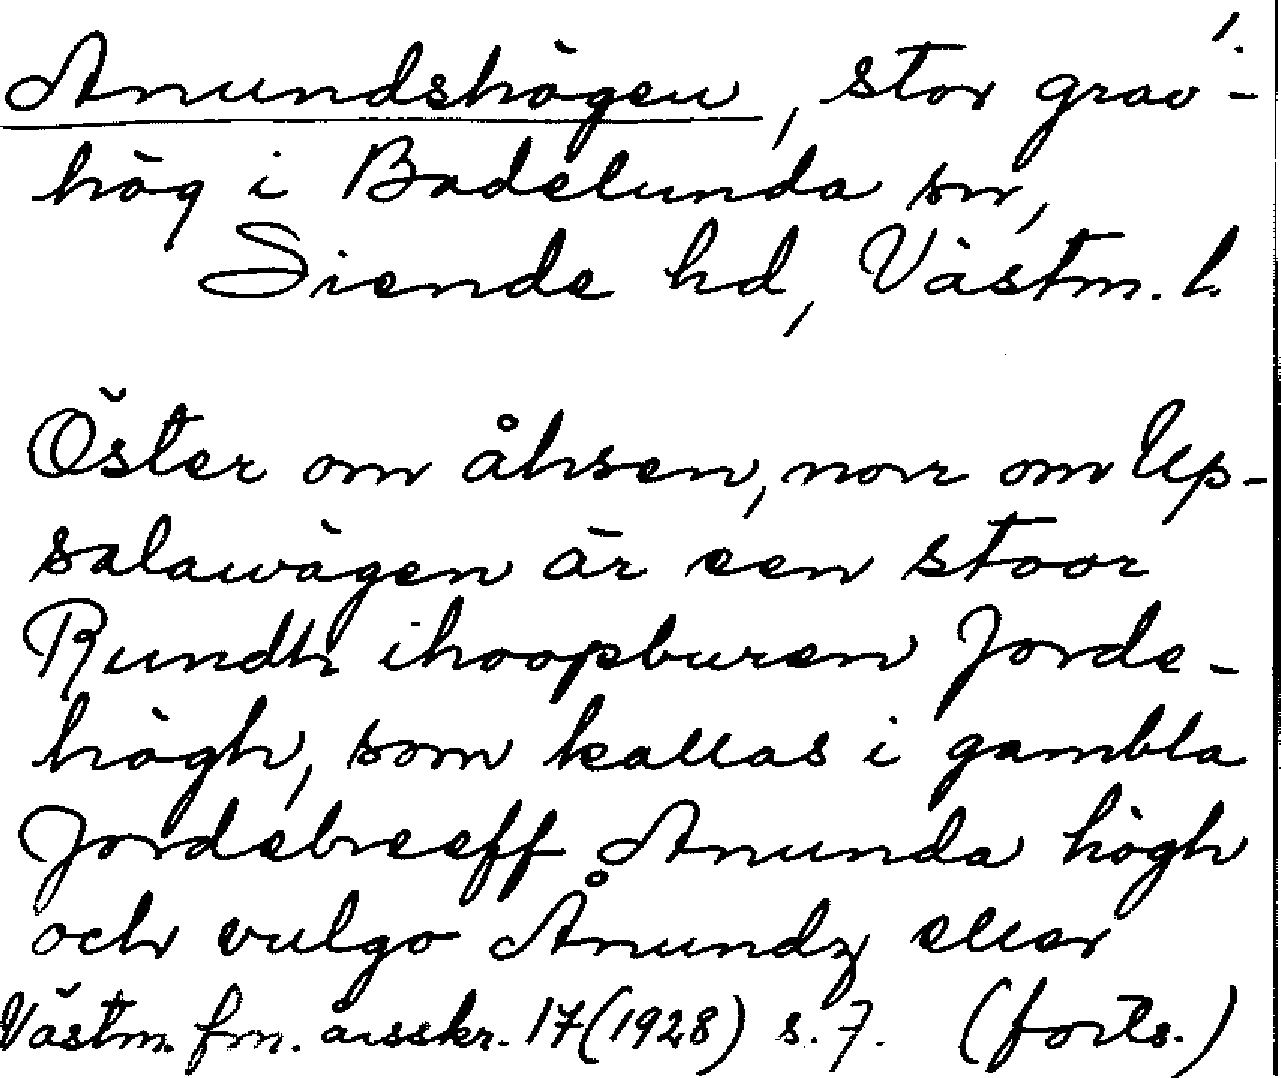 1.
Anundshögen, stor grav-
hög i Badelunda sn,
Siende hd, Västm. l.
Öster om åhsen, norr om Up-
salawägen är een stoor
Rundh ihoopburen Jorde-
högh, som kallas i gambla
Jordebreeff Anunda högh
och vulgo Ånundz eller
Västm. fm. årsskr. 17 (1928) s. 7. (forts.)